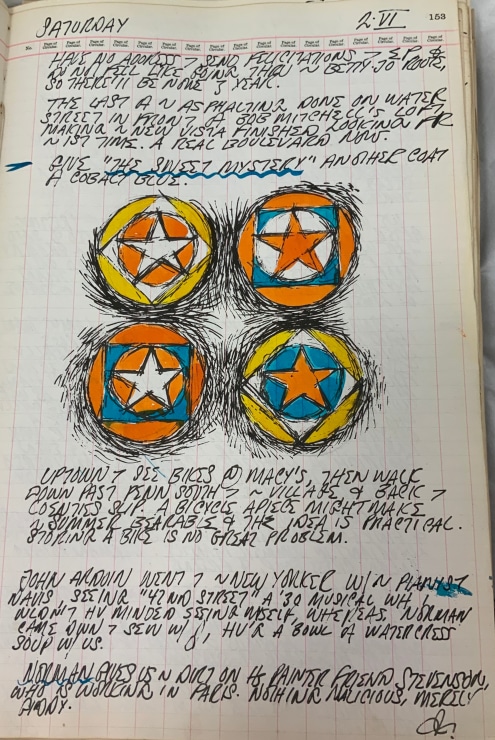 SATURDAY 2·VI 153
HAVE NO ADDRESS SEND FELICITATIONS E.P. &
DO NOT FEEL LIKE GOING THRU BETTY JO ROUTE,
SO THERE'LL BE NONE YEAR.
THE LAST ASPHALTING DONE ON WATER
STREET IN FRONT OF BOB MITCHELL'S LOFT
MAKING NEW VISTA FINISHED LOOKING
1ST TIME. A REAL BOULEVARD NOW.
GIVE "THE SWEET MYSTERY" ANOTHER COAT
COBALT BLUE.
UPTOWN SEE BIKES @ MACY'S, THEN WALK
DOWN PAST PENN SOUTH VILLAGE & BACK
COENTIES SLIP. A BICYCLE APIECE MIGHT MAKE
SUMMER BEARABLE & THE IDEA IS PRACTICAL.
STORING A BIKE IS NO GREAT PROBLEM.
JOHN ARDOIN WENT NEW YORKER W/ PIANIST
SEEING "42ND STREET" A '30 MUSICAL WH
HV MINDED SEEING MYSELF WHEREAS NORMAN
CAME DOWN SEW W/ HV'G A BOWL WATERCRESS
SOUP W/ US.
NORMAN GIVES US DIRT ON HS PAINTER FRIEND STEVENSON,
WHO IS WORKING IN PARIS. NOTHING MALICIOUS, MERELY